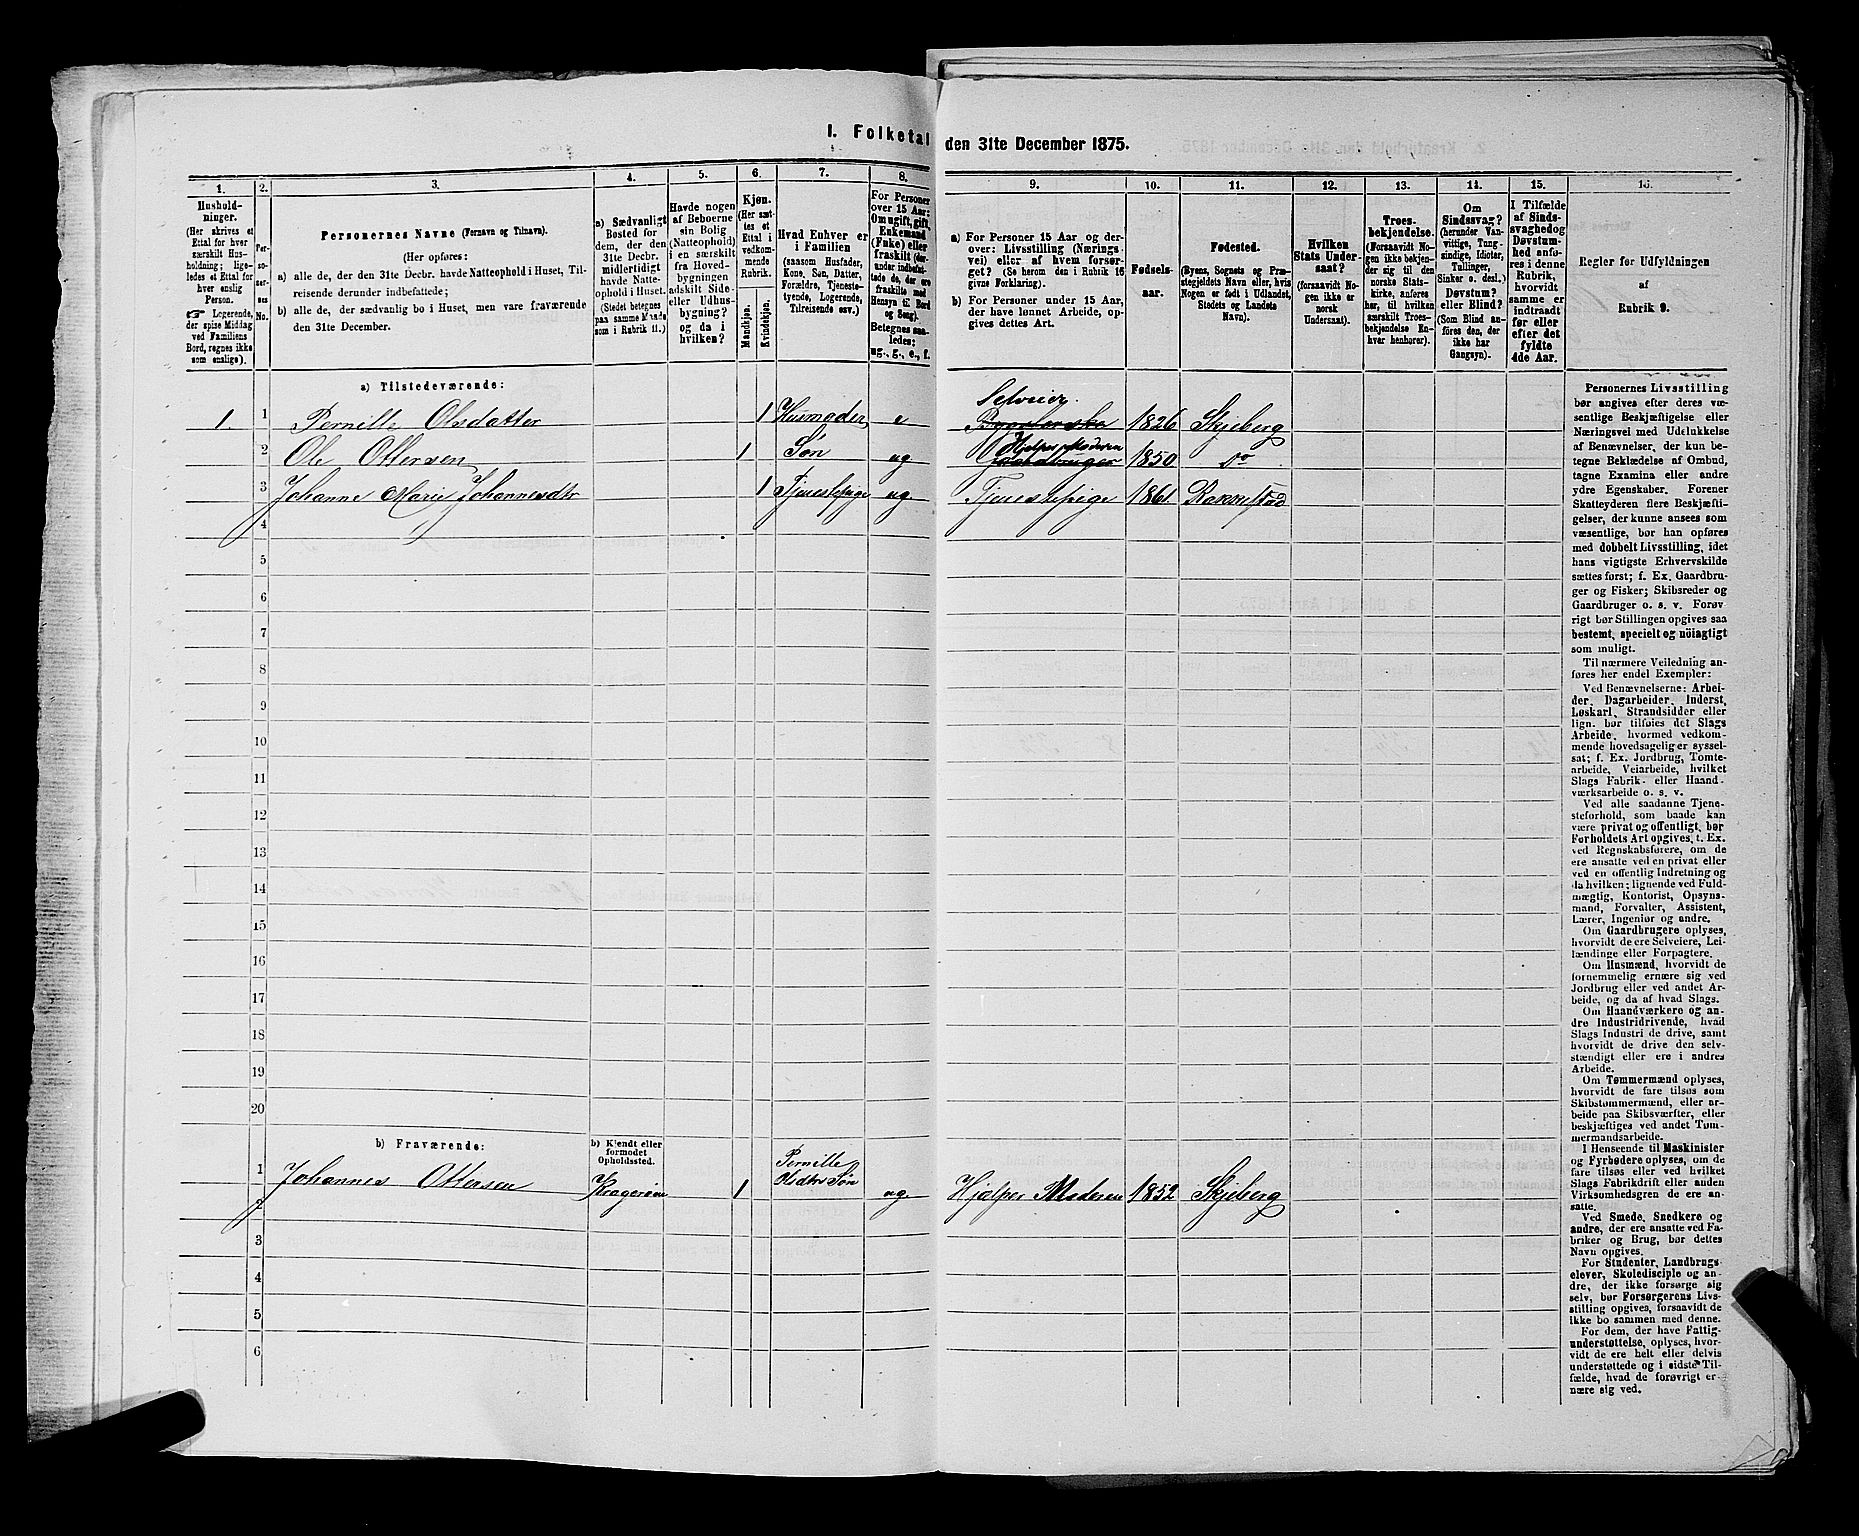 I. Folketal den 31te December 1875.
1. 2. 3. 4. 5. 6. 7. 8. 9. 10. 11. 12. 13. 14. 15. 16.
Hushold-
ninger.
(Her skrives et
Ettal for hver
særskilt Hus-
holdning; lige-
ledes et Ettal for
hver enslig
Person.
☞ Logerende,
der spise Middag
ved Familiens
Bord, regnes ikke
som enslige).
Per-
so-
ner-
nes
No.
Personernes Navne (Fornavn og Tilnavn).
(Her opføres:
a) alle de, der den 31te Decbr. havde Natteophold i Huset, Til-
reisende derunder indbefattede;
b) alle de, der sædvanlig bo i Huset, men vare fraværende
den 31te December.
a) Sædvanligt
Bosted for
dem, der den
31te Decbr.
midlertidigt
havde Natte-
ophold i Huset.
(Stedet betegnes
paa samme Maade
som i Rubrik 11.)
Havde nogen
af Beboerne
sin Bolig
(Natteophold)
i en særskilt
fra Hoved-
bygningen
adskilt Side-
eller Udhus-
bygning?
og da i
hvilken?
Kjøn.
(Her sæt-
tes et
Ettal i
vedkom-
mende
Rubrik.
Mandkjøn.
Kvindekjøn.
Hvad Enhver er
i Familien
(saasom Husfader,
Kone, Søn, Datter,
Forældre, Tjeneste-
tyende, Logerende,
Tilreisende osv.)
For Personer
over 15 Aar:
Om ugift, gift,
Enkemand
(Enke) eller
fraskilt (der-
under indbefat-
tede de, der ere
fraskilte med
Hensyn til Bord
og Seng).
Betegnes saa-
ledes:
ug., g., e., f.
a) For Personer 15 Aar og der-
over: Livsstilling (Nærings-
vei) eller af hvem forsør-
get? (Se herom den i Rubrik 16
givne Forklaring).
b) For Personer under 15 Aar,
der have lønnet Arbeide, op-
gives dettes Art.
Fødsels-
aar.
Fødested.
(Byens, Sognets og Præ-
stegjeldets Navn eller, hvis
Nogen er født i Udlandet,
Stedets og Landets
Navn).
Hvilken
Stats Under-
saat?
(forsaavidt No-
gen ikke er
norsk
Undersaat).
Troes-
bekjendelse.
(Forsaavidt No-
gen ikke bekjen-
der sig til den
norske Stats-
kirke, anføres
her, til hvilken
særskilt Troes-
bekjendelse En-
hver henhører).
Om
Sindssvag?
(herunder Van-
vittige, Tung-
sindige, Idioter,
Tullinger,
Sinker o. desl.)
Døvstum?
eller Blind?
(Som Blind an-
føres den, der
ikke har
Gangsyn).
I Tilfælde
af Sinds-
svaghed og
Døvstum-
hed anfø-
res i denne
Rubrik,
hvorvidt
samme er
indtraadt
før eller
efter det
fyldte
4de Aar.
Regler for Udfyldningen
af
Rubrik 9.
a) Tilstedeværende:
Selveier.
1. 1 Pernille Olsdatter 1 Husmoder e 1826 Skjeberg
2 Ole Ottersen 1 Søn ug Hjelper Moderen Gaardbruger 1850 Do
3 Johanne Marie Johannesdtr 1 Tjenestepige ug. Tjenestepige 1861 Rakkestad
4
5
6
7
8
9
10
11
12
13
14
15
16
17
18
19
20
b) Fraværende:
b) Kjendt eller
formodet
Opholdssted.
1 Johannes Ottersen Kragerøen 1 Pernille
Olsdtrs Søn ug. Hjælper Moderen 1852 Skjeberg
2
3
4
5
6
Personernes Livsstilling
bør angives efter deres væ-
sentlige Beskjæftigelse eller
Næringsvei med Udelukkelse
af Benævnelser, der kun be-
tegne Beklædelse af Ombud,
tagne Examina eller andre
ydre Egenskaber. Forener
Skatteyderen flere Beskjæfti-
gelser, der kunne ansees som
væsentlige, bør han opføres
med dobbelt Livsstilling, idet
hans vigtigste Erhvervskilde
sættes først; f. Ex. Gaardbru-
ger og Fisker; Skibsreder og
Gaardbruger o. s. v. Forøv-
rigt bør Stillingen opgives saa
bestemt, specielt og nöiagtigt
som muligt.
Til nærmere Veiledning an-
føres her endel Exempler:
Ved Benævnelserne: Arbei-
der, Dagarbeider, Inderst,
Løskarl, Strandsidder eller
lign. bør tilføies det Slags
Arbeide, hvormed vedkom-
mende hovedsagelig er syssel-
sat; f. Ex. Jordbrug, Tomte-
arbeide, Veiarbeide, hvilket
Slags Fabrik- eller Haand-
værksarbeide o. s. v.
Ved alle saadanne Tjene-
steforhold, som baade kan
være privat og offentligt, bør
Forholdets Art opgives, t. Ex.
ved Regnskabsførere, om de
ere ansatte ved en privat eller
ved en offentlig Indretning og
da hvilken; lignende ved Fuld-
mægtig, Kontorist, Opsyns-
mand, Forvalter, Assistent,
Lærer, Ingeniør og andre.
Om Gaardbrugere oplyses,
hvorvidt de ere Selveiere, Lei-
lændinge eller Forpagtere.
Om Husmænd, hvorvidt de
fornemmelig ernære sig ved
Jordbrug eller ved andet Ar-
beide, og da af hvad Slags.
Om Haandværkere og an-
dre Industridrivende, hvad
Slags Industri de drive, samt
hvorvidt de drive den selv-
stændigt eller ere i andres
Arbeide.
Om Tømmermænd oplyses,
hvorvidt de fare tilsøs som
Skibstømmermænd, eller ar-
beide paa Skibsværfter, eller
beskjæftiges ved andet Tøm-
mermandsarbeide.
I Henseende til Maskinister
og Fyrbødere oplyses, om de
fare tilsøs eller ved hvilket
Slags Fabrikdrift eller anden
Virksomhedsgren de ere an-
satte.
Ved Smede, Snedkere og
andre, der ere ansatte ved Fa-
briker og Brug, bør dettes
Navn opgives.
For Studenter, Landbrugs-
elever, Skoledisciple og an-
dre, der ikke forsørge sig
selv, bør Forsørgerens Livs-
stilling opgives, forsaavidt de
ikke bo sammen med denne.
For dem, der have Fattig-
understøttelse, oplyses, hvor-
vidt de ere helt eller delvis
understøttede og i sidste Til-
fælde, hvad de forøvrigt er-
nære sig ved.